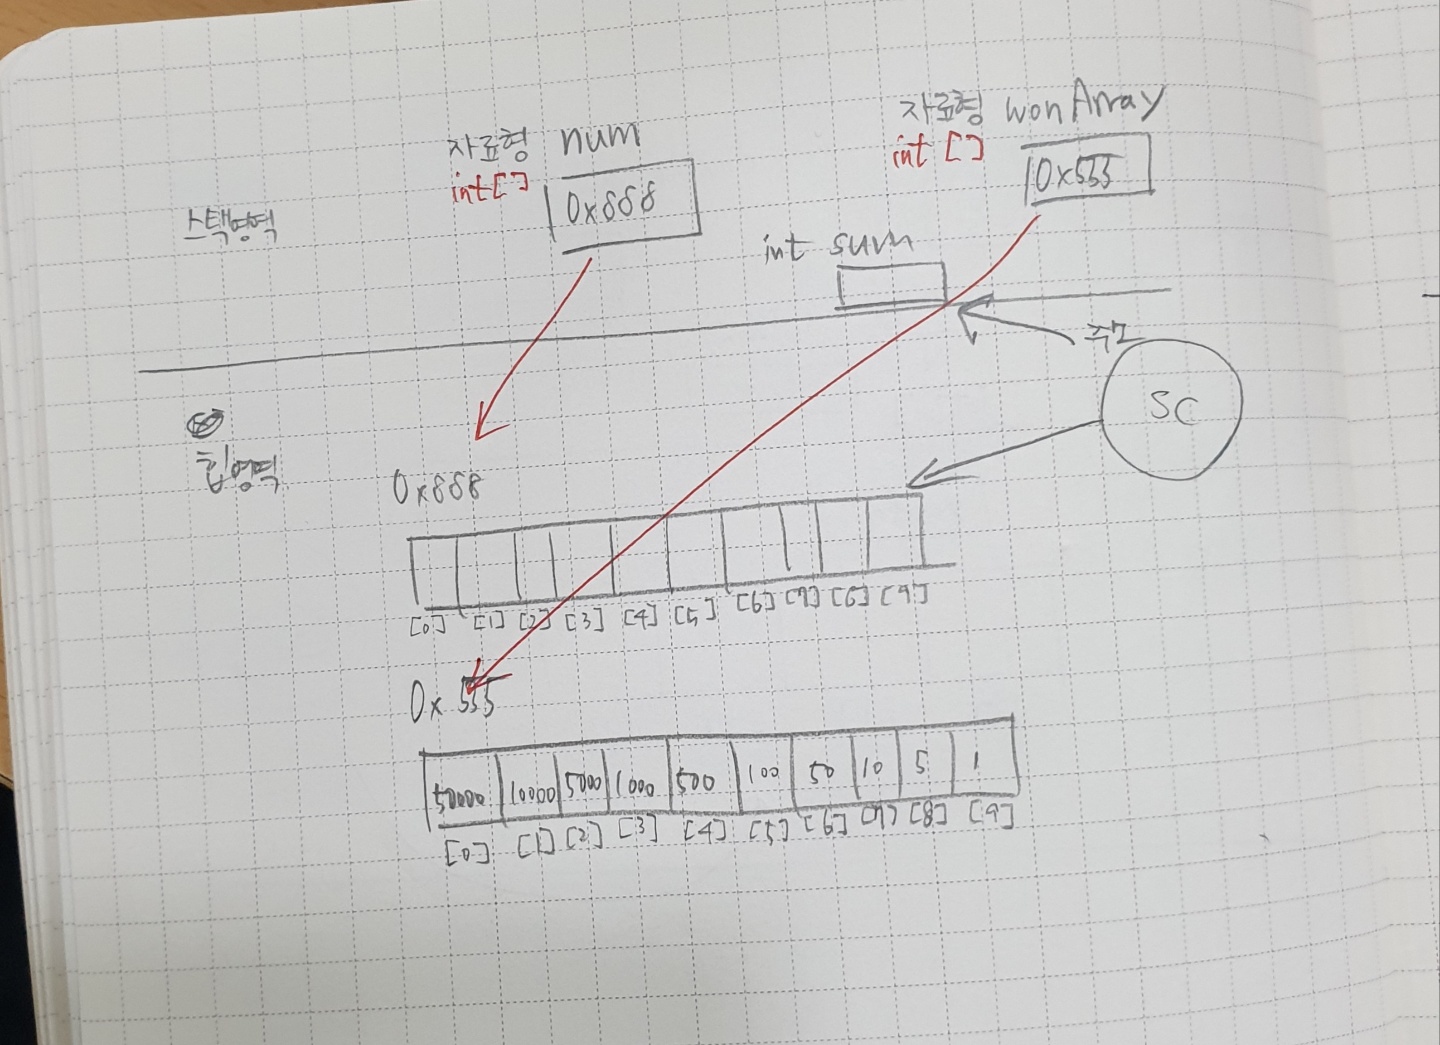 자료형 num
int[]
0x888
자료형 wonArray
int []
0x555
스택영역
int sum
SC
힙영역
0x888
[0] [1] [2] [3] [4] [5] [6] [7] [6] [9]
0x 555
50000 10000 5000 1000 500 100 50 10 5 1
[0] [1] [2] [3] [4] [5] [6] [7] [8] [9]